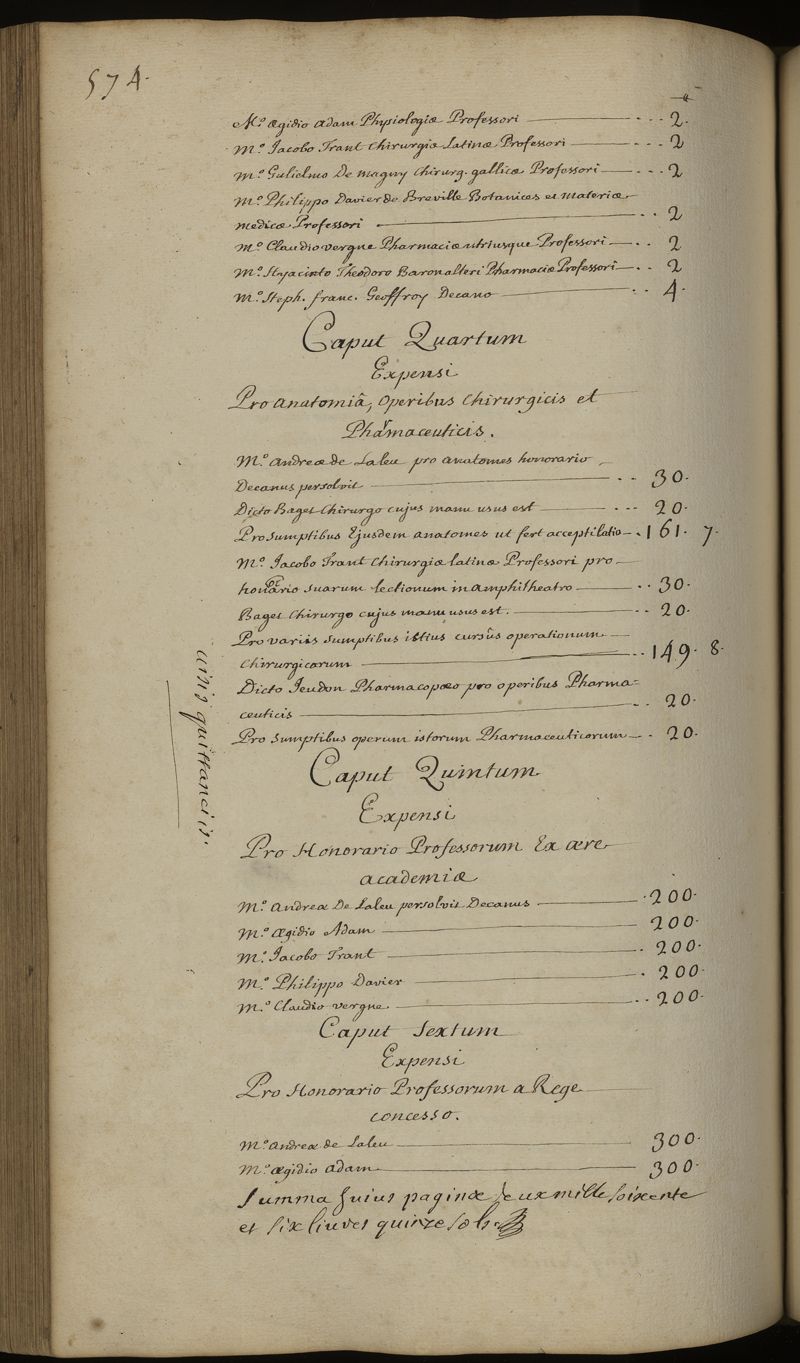 574.
M.º Ægidio Adam Physiologiæ Professori 2.
M.º Jacobo Trant Chirurgiæ Latinæ Professori 2
M.º Gulielmo De Magny Chirurg. gallicæ Professori 2
M.º Philippo Davier de Breville Botanices et Materiæ
medicæ Professori 2
M.º Claudio vergne Pharmaciæ utriusque Professori 2
M.º Hyacinto Theodoro Baron alteri Pharmaciæ Professori 2
M.º Steph. franc. Geoffroy Decano 4.
Caput Quartum
Expensi
Pro Anatomiâ, Operibus Chirurgicis et
Pharmaceuticis.
M.º Andreæ de Laleu pro anatomes honorario
Decanus persolvit 30.
Dicto Baget Chirurgo cujus manu usus est 20.
Pro Sumptibus Ejusdem anatomes ut fert acceptilatio 161. 7.
M.º Jacobo Trant Chirurgiæ latinæ Professori pro
honorario suarum lectionum in amphitheatro 30.
Baget Chirurgo cujus manu usus est. 20.
Pro variis sumptibus istius cursûs operationum
Chirurgicarum 149. 8.
Dicto Jeudon Pharmacopæo pro operibus Pharma=
ceuticis 20.
Pro Sumptibus operum istorum Pharmaceuticorum 20.
visis quittanciis.
Caput Quintum
Expensi
Pro Honorario Professorum Ex ære
academiæ
M.º Andreæ De Laleu persolvit Decanus 200.
M.º Ægidio Adam 200.
M.º Jacobo Trant 200.
M.º Philippo Davier 200.
M.º Claudio vergne 200.
Caput Sextum
Expensi
Pro Honorario Professorum a Rege
concesso.
M.º Andreæ de Laleu 300.
M.º Ægidio Adam 300.
Summa hujus paginæ deux mille soixente
et six livres quinze sols.